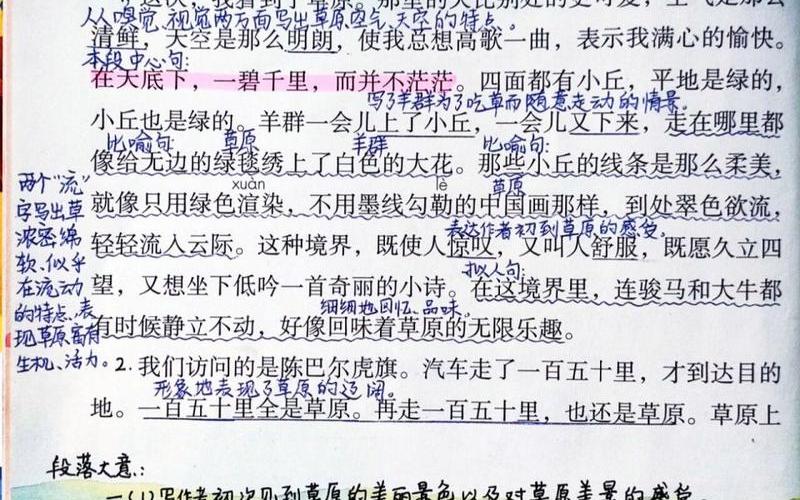 从嗅觉、视觉两方面写出草原空气、天空的特点。
清鲜,天空是那么明朗,使我总想高歌一曲,表示我满心的愉快。
本段中心句:
在天底下,一碧千里,而并不茫茫。四面都有小丘,平地是绿的,
写了羊群为了吃草而随意走动的情景。
小丘也是绿的。羊群一会儿上了小丘,一会儿又下来,走在哪里都
比喻句: 草原 羊群 比喻句:
像给无边的绿毯绣上了白色的大花。那些小丘的线条是那么柔美,
xuàn lè 草原
就像只用绿色渲染,不用墨线勾勒的中国画那样,到处翠色欲流,
表达作者初到草原的感受。
轻轻流入云际。这种境界,既使人惊叹,又叫人舒服,既愿久立四
拟人句:
望,又想坐下低吟一首奇丽的小诗。在这境界里,连骏马和大牛都
细细地回忆、品味。
有时候静立不动,好像回味着草原的无限乐趣。
两个“流”
字写出草
浓密绵
软、似乎
在流动
的特点,表
现草原富有
生机、活力。
2. 我们访问的是陈巴尔虎旗。汽车走了一百五十里,才到达目的
形象地表现了草原的辽阔。
地。一百五十里全是草原。再走一百五十里,也还是草原。草原上
段落大意:
一(1)写作者初次见到草原的美丽景色以及对草原美景的感受。